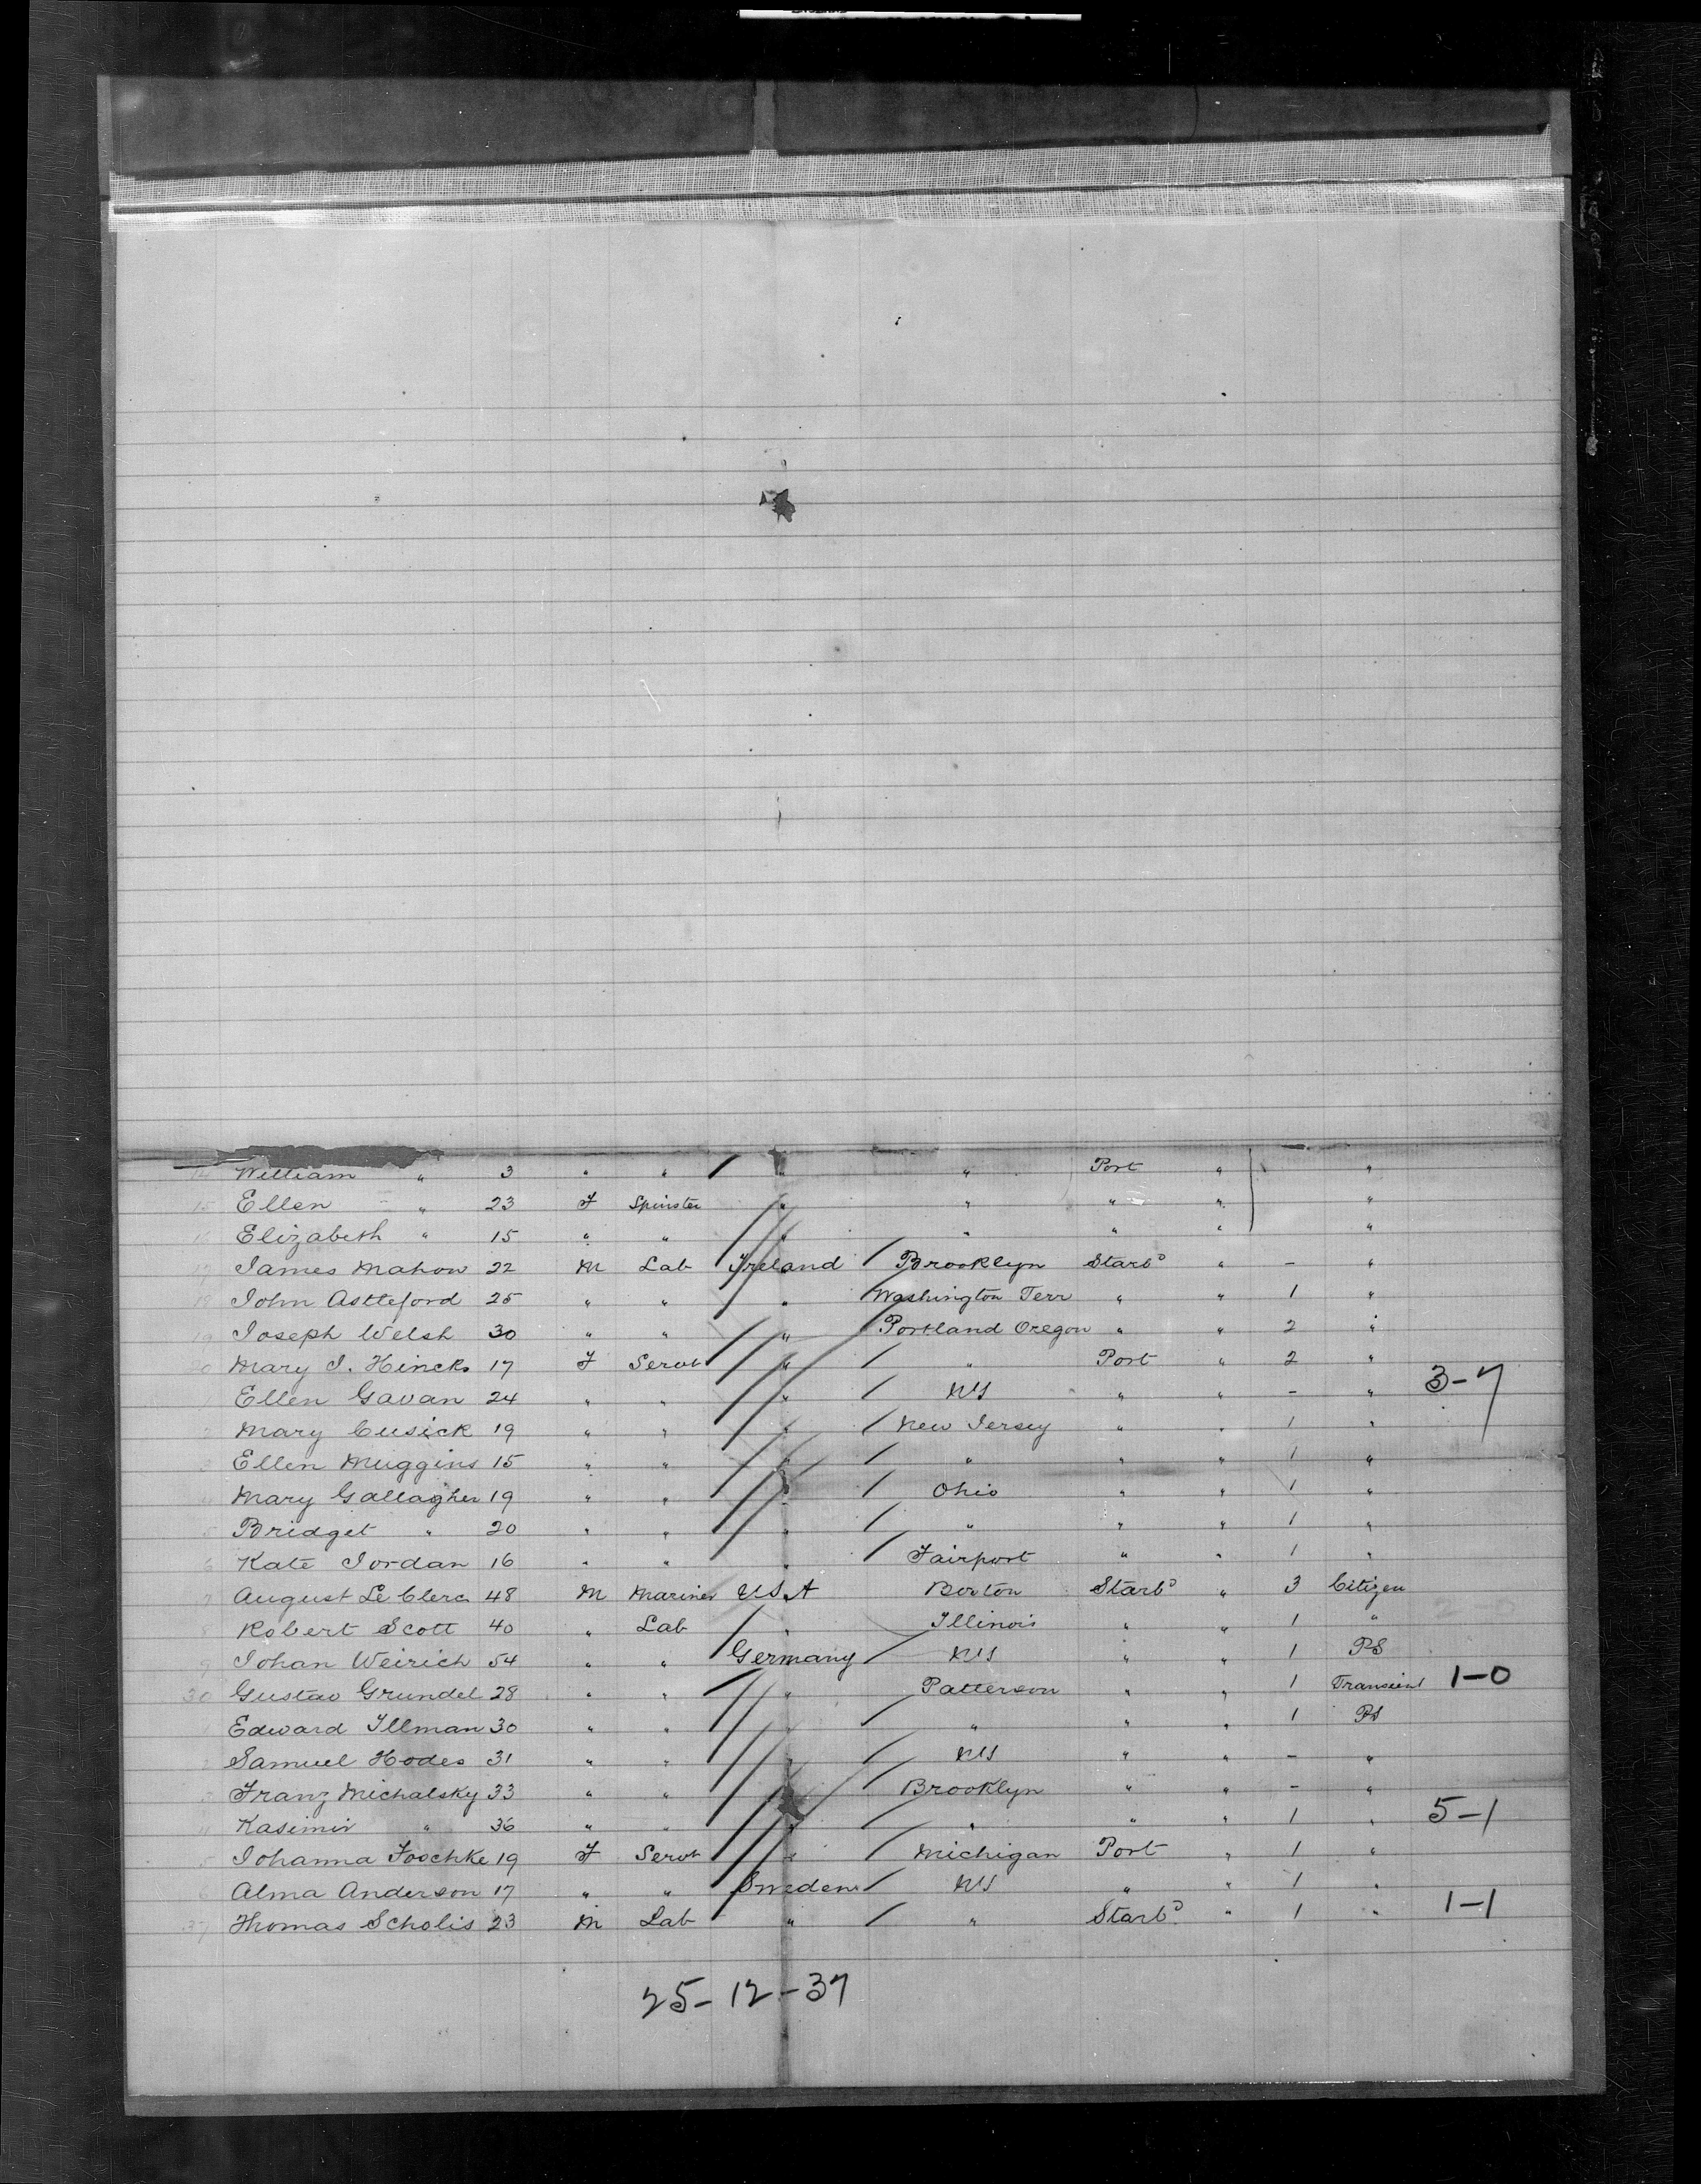 14 William " 3 " " " " Port " "
15 Ellen " 23 F Spinster " " " " "
16 Elizabeth " 15 " " " " " " "
17 James Mahon 22 M Lab Ireland Brooklyn Starbd " - "
18 John Astleford 25 " " " Washington Terr " " 1 "
19 Joseph Welsh 30 " " " Portland Oregon " " 2 "
20 Mary J. Hincks 17 F Servt " " Port " 2 "
1 Ellen Gavan 24 " " " NY " " - " 3-7
2 Mary Cusick 19 " " " New Jersey " " 1 "
3 Ellen Muggins 15 " " " " " " 1 "
4 Mary Gallagher 19 " " " Ohio " " 1 "
5 Bridget " 20 " " " " " " 1 "
6 Kate Jordan 16 " " " Fairport " " 1 "
7 August Le Clerc 48 M Mariner USA Boston Starbd " 3 Citizen
8 Robert Scott 40 " Lab " Illinois " " 1 "
9 Johan Weirich 54 " " Germany NY " " 1 PS
30 Gustav Grundel 28 " " " Patterson " " 1 Transient 1-0
1 Edward Illman 30 " " " " " " 1 PS
2 Samuel Hodes 31 " " " NY " " - "
3 Franz Michalsky 33 " " " Brooklyn " " - "
4 Kasimir " 36 " " " " " " 1 " 5-1
5 Johanna Joschke 19 F Servt " Michigan Port " 1 "
6 Alma Anderson 17 " " Sweden NY " " 1 "
37 Thomas Scholis 23 M Lab " " Starbd " 1 " 1-1
25-12-37